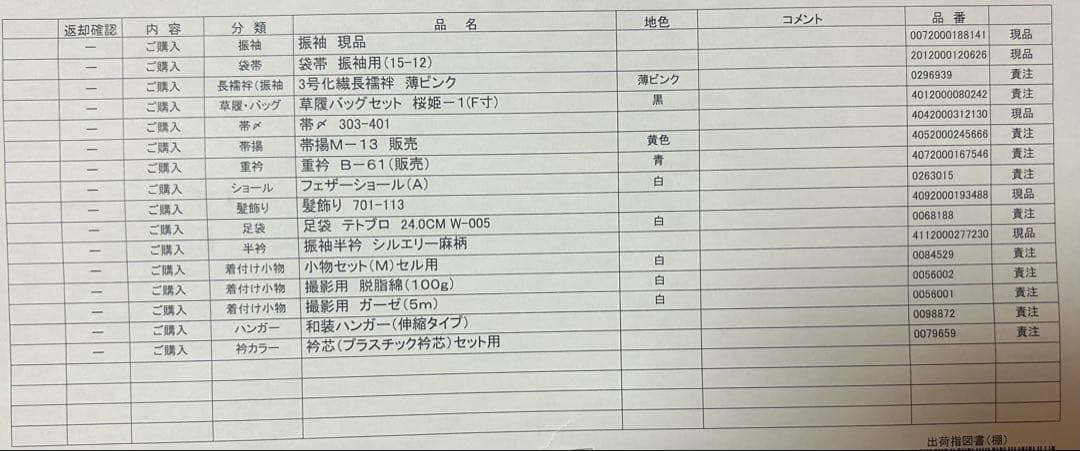 返却確認 内 容 分 類 品 名 地色 コメント 品 番
ー ご購入 振袖 振袖 現品 0072000188141 現品
ー ご購入 袋帯 袋帯 振袖用(15-12) 2012000120626 現品
ー ご購入 長襦袢(振袖 3号化繊長襦袢 薄ピンク 薄ピンク 0296939 責注
ー ご購入 草履・バッグ 草履バッグセット 桜姫-1(F寸) 黒 4012000080242 責注
ー ご購入 帯〆 帯〆 303-401 4042000312130 現品
ー ご購入 帯揚 帯揚M-13 販売 黄色 4052000245666 責注
ー ご購入 重衿 重衿 B-61(販売) 青 4072000167546 責注
ー ご購入 ショール フェザーショール(A) 白 0263015 責注
ー ご購入 髪飾り 髪飾り 701-113 4092000193488 現品
ー ご購入 足袋 足袋 テトブロ 24.0CM W-005 白 0068188 責注
ー ご購入 半衿 振袖半衿 シルエリー麻柄 4112000277230 現品
ー ご購入 着付け小物 小物セット(M)セル用 白 0084529 責注
ー ご購入 着付け小物 撮影用 脱脂綿(100g) 白 0056002 責注
ー ご購入 着付け小物 撮影用 ガーゼ(5m) 白 0056001 責注
ー ご購入 ハンガー 和装ハンガー(伸縮タイプ) 0098872 責注
ー ご購入 衿カラー 衿芯(プラスチック衿芯)セット用 0079659 責注
出荷指図書(棚)